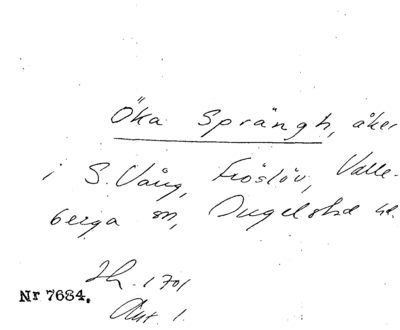 Öka Sprängh, åker
i S. Vång, Fröslöv, Valle-
berga sn, Ingelstad hd.
Jb. 1701
Nr 7684.
Akt 1.